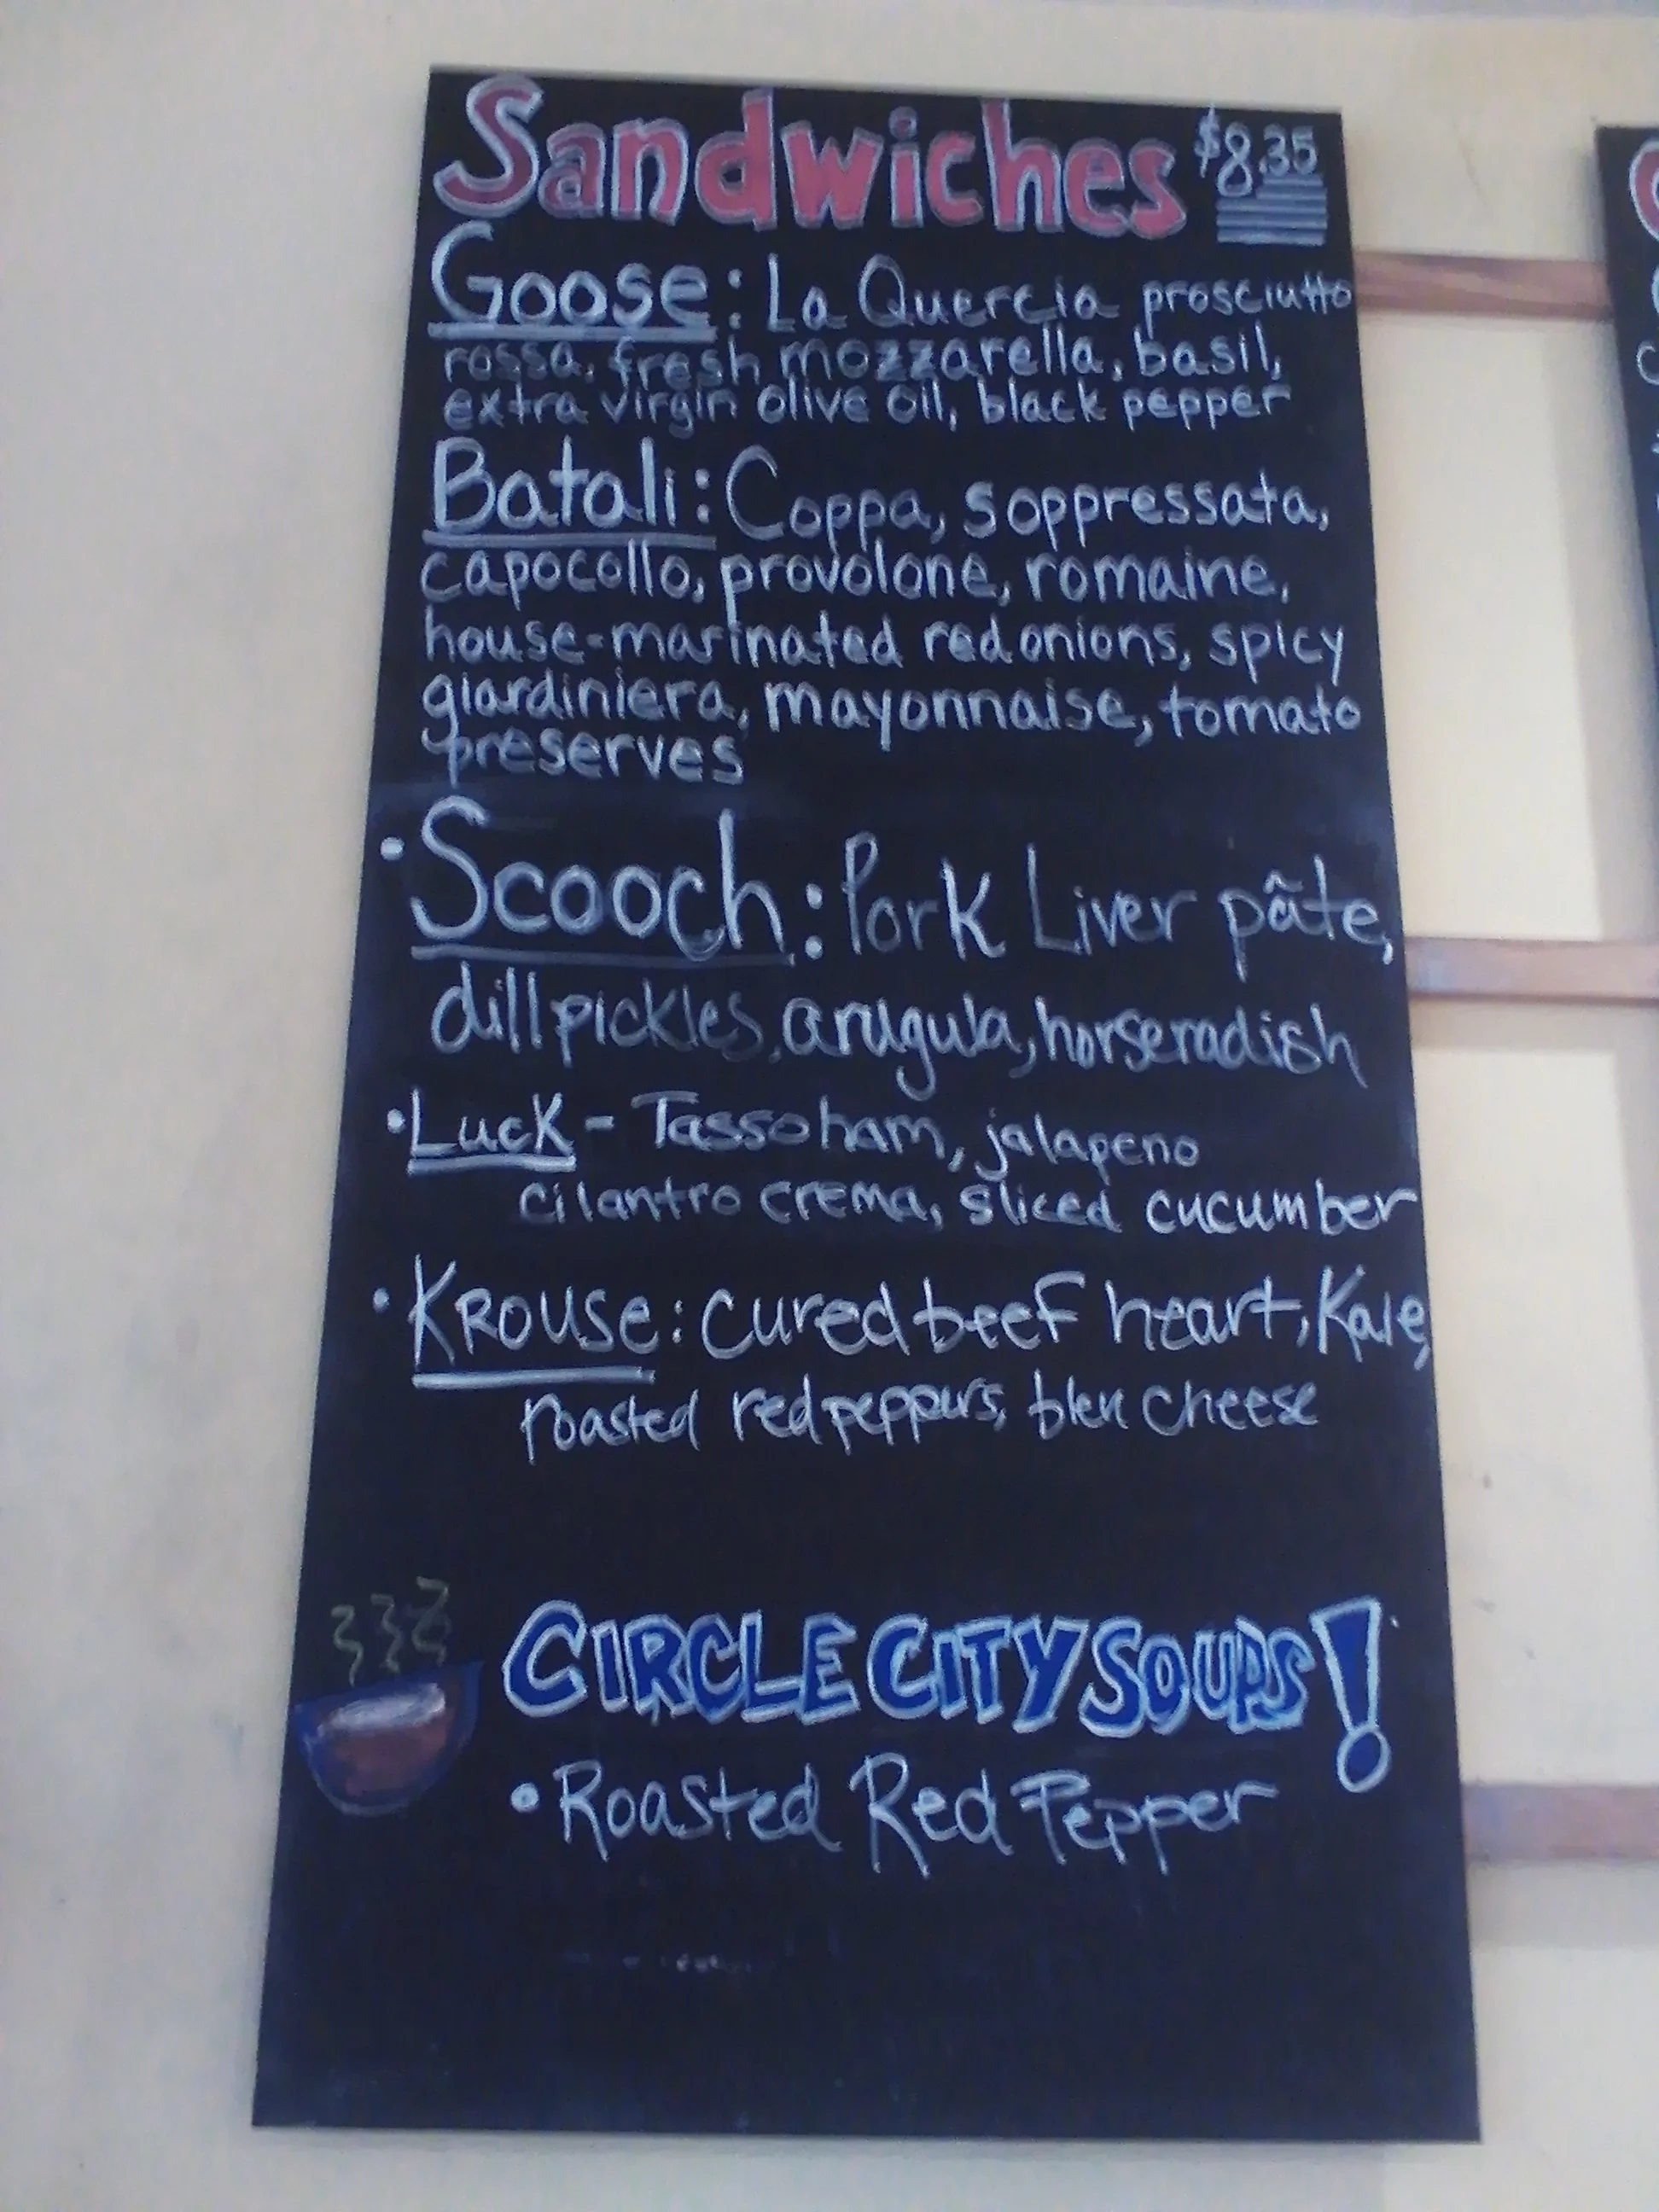 Sandwiches $8.35
Goose: La Quercia prosciutto
rossa, fresh mozzarella, basil,
extra virgin olive oil, black pepper
Batali: Coppa, soppressata,
capocollo, provolone, romaine,
house-marinated red onions, spicy
giardiniera, mayonnaise, tomato
preserves
• Scooch: Pork Liver pâte,
dill pickles, arugula, horseradish
• Luck - Tasso ham, jalapeno
cilantro crema, sliced cucumber
• KROUSE: cured beef heart, Kale,
roasted red peppers, bleu cheese
CIRCLE CITY SOUPS!
• Roasted Red Pepper